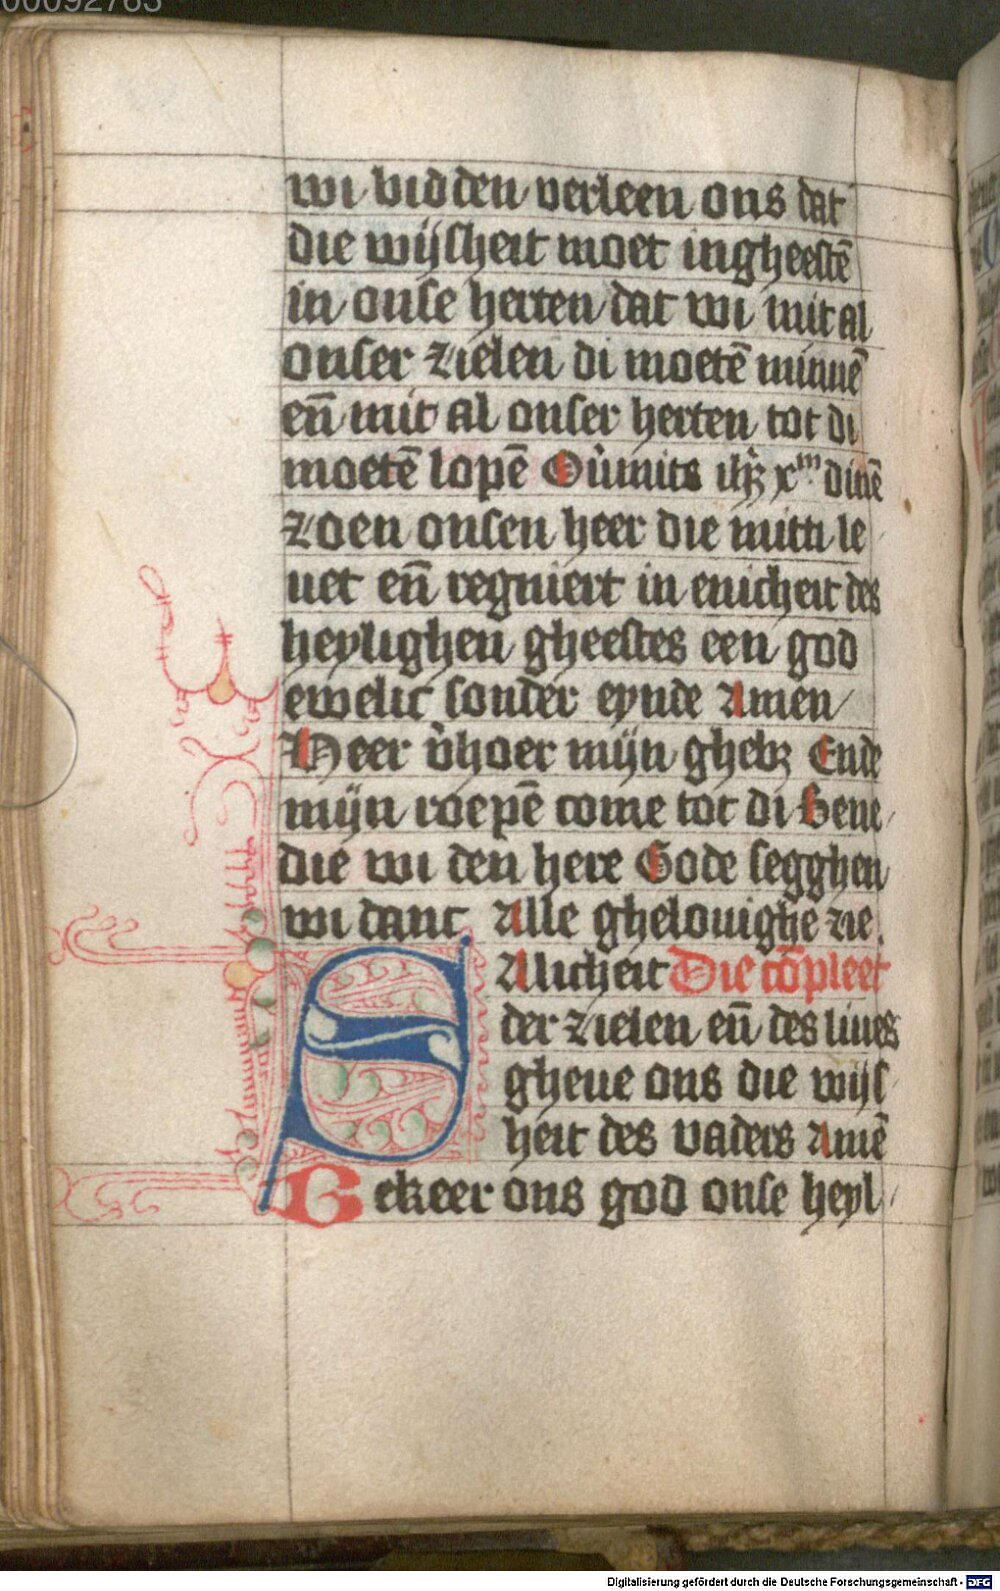 00092763
wi bidden verleen ons dat
die wijsheit moet ingheestē
in onse herten dat wi mit al
onser zielen di moetē minnē
eñ mit al onser herten tot di
moetē lopē Ou̅mits ihꝫ xp̄m dinē
zoen onsen heer die mitti le
uet eñ regniert in enicheit des
heylighen gheestes een god
ewelic sonder eynde Amen
Heer v̄hoer mijn ghebꝫ Ende
mijn roepē come tot di Bene
die wi den here Gode segghen
wi danc Alle ghelouighe zie
SAlicheit Die cōpleet
der zielen eñ des liues
gheue ons die wijs
heit des vaders Amē
Bekeer ons god onse heyl
Digitalisierung gefördert durch die Deutsche Forschungsgemeinschaft - DFG